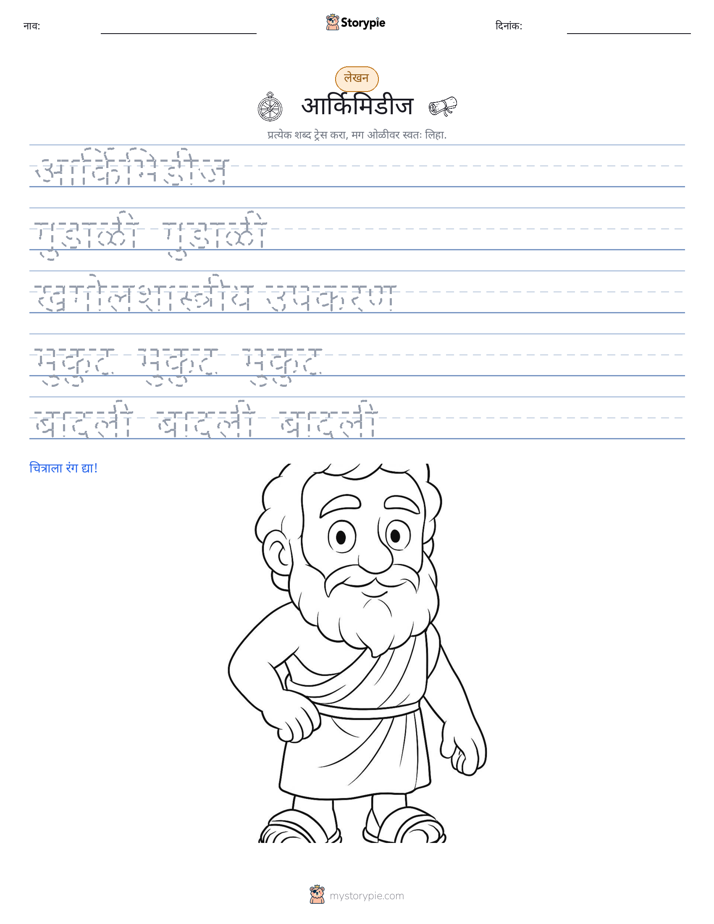 नाव:
Storypie
दिनांक:
लेखन
आर्किमिडीज
प्रत्येक शब्द ट्रेस करा, मग ओळीवर स्वतः लिहा.
आर्किमिडीज
गुडाळी गुडाळी
खगोलशास्त्रीय उपकरण
मुकुट मुकुट मुकुट
बादली बादली बादली
चित्राला रंग द्या!
mystorypie.com